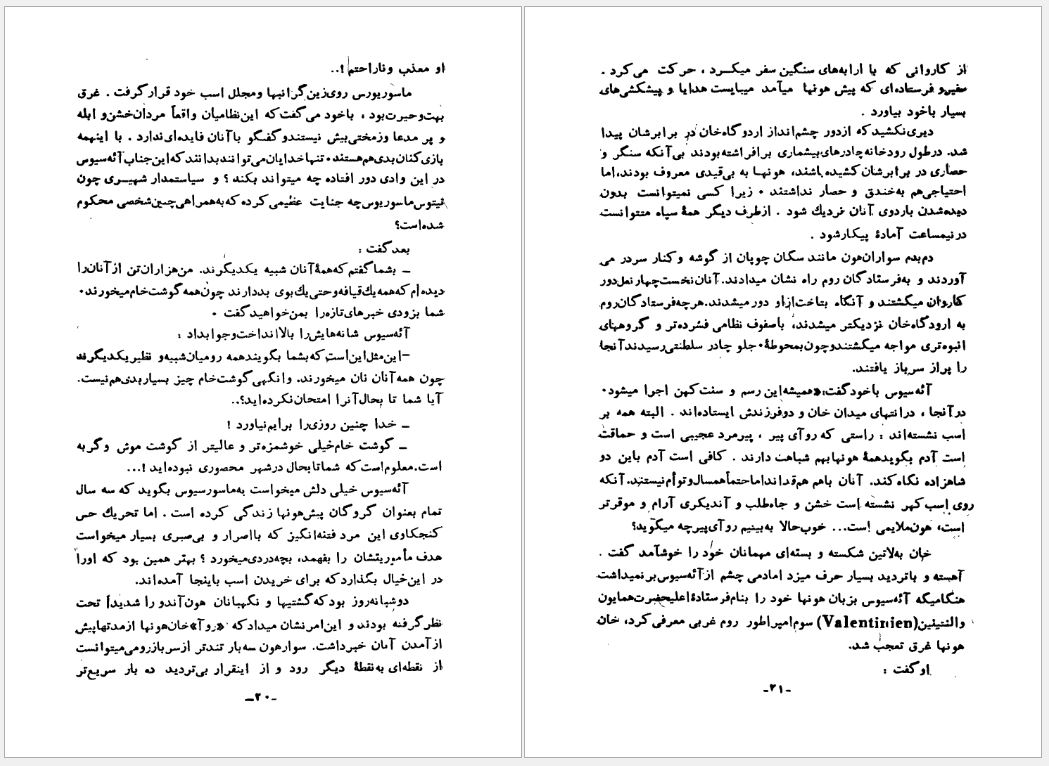 او معذب و ناراحتم !..
ماسوریورس روی‌زین‌گرانبها ومجلل اسب خود قرارگرفت . غرق
بهت‌وحیرت‌بود ، باخود می‌گفت‌که این‌نظامیان واقعاً مردان‌خشن‌و ابله
و پر مدعا وزمختی‌بیش نیستندوگفتگو با آنان فایده‌ای‌ندارد . با اینهمه
بازی‌کنان‌بدی‌هم‌هستند. تنهاخدایان‌می‌توانندبدانندکه‌این‌جناب‌آئه‌سیوس
در این وادی دور افتاده چه میتواند بکند ؟ و سیاستمدار شهیری چون
تیتوس‌ماسوریوس‌چه جنایت عظیمی‌کرده که‌به‌همراهی‌چنین‌شخصی محکوم
شده‌است؟
بعدگفت :
ــ بشماگفتم‌که‌همهٔ آنان شبیه یکدیگرند. من‌هزاران‌تن ازآنان‌را
دیده‌ام‌که‌همه‌یك‌قیافه‌وحتی‌یك‌بوی بددارند چون‌همه‌گوشت‌خام‌میخورند.
شما بزودی خبرهای‌تازه‌را بمن‌خواهیدگفت .
آئه‌سیوس شانه‌هایش‌را بالاانداخت‌وجواب‌داد :
ــ این‌مثل‌این‌است‌که‌بشما بگویندهمه رومیان‌شبیه‌و نظیریکدیگرند
چون همه‌آنان نان میخورند. وانگهی‌گوشت‌خام چیز بسیاربدی‌هم‌نیست.
آیا شما تا بحال‌آنرا امتحان‌نکرده‌اید؟..
ــ خدا چنین روزی‌را برایم‌نیاورد !
ــ گوشت خام‌خیلی خوشمزه‌تر و عالیتر از گوشت موش وگربه
است.معلوم‌است‌که شماتابحال درشهر محصوری نبوده‌اید !...
آئه‌سیوس خیلی دلش میخواست به‌ماسورسیوس بگوید که سه سال
تمام بعنوان گروگان پیش‌هونها زندگی کرده است . اما تحریك حس
کنجکاوی این مرد فتنه‌انگیز که بااصرار و بی‌صبری بسیار میخواست
هدف مأموریتشان را بفهمد، بچه‌دردی‌میخورد ؟ بهتر همین بود که اورا
در این‌خیال بگذاردکه برای خریدن اسب باینجا آمده‌اند.
دوشبانه‌روز بودکه‌گشتیها و نگهبانان هون‌آندو را شدیداً تحت
نظرگرفته بودند و این‌امرنشان میدادکه «روآ»خان‌هونها ازمدتهاپیش
ازآمدن آنان خبرداشت. سوارهون سه‌بار تندتر ازسربازرومی‌میتوانست
از نقطه‌ای به‌نقطهٔ دیگر رود و از اینقرار بی‌تردید ده بار سریع‌تر
-۲۰-
از کاروانی که با ارابه‌های سنگین سفر میکرد ، حرکت می‌کرد .
سفیرو فرستاده‌ای که پیش هونها میآمد میبایست هدایا و پیشکشی‌های
بسیار باخود بیاورد .
دیری‌نکشیدکه ازدور چشم‌انداز اردوگاه‌خان در برابرشان پیدا
شد. درطول رودخانه چادرهای‌بیشماری برافراشته‌بودند بی‌آنکه سنگر و
حصاری در برابرشان‌کشیده‌باشند، هونهـا به بی‌قیدی معروف بودند،اما
احتیاجی‌هم به‌خندق و حصار نداشتند . زیرا کسی نمیتوانست بدون
دیده‌شدن باردوی آنان نزدیك شود . ازطرف دیگر همهٔ سپاه میتوانست
درنیمساعت آمادهٔ پیکارشود .
دم‌بدم سواران‌هون مانند سکان چوپان از گوشه و کنار سردر می
آوردند و به‌فرستادگان روم راه نشان میدادند.آنان‌نخست‌چهارنعل‌دور
کاروان میگشتند و آنگاه بتاخت‌ازاو دورمیشدند.هرچه‌فرستادگان‌روم
به اردوگاه‌خان نزدیکتر میشدند، باصفوف نظامی فشرده‌تر و گروههای
انبوه‌تری مواجه میگشتندوچون‌بمحوطهٔ جلو چادر سلطنتی‌رسیدندآنجا
را پراز سرباز یافتند.
آئه‌سیوس باخودگفت:«همیشه‌این رسم و سنت‌کهن اجرا میشود.
درآنجا ، درانتهای میدان خان و دوفرزندش ایستاده‌اند . البته همه بر
اسب نشسته‌اند : راستی که روآی پیر ، پیرمرد عجیبی است و حماقت
است آدم بگویدهمهٔ هونهابهم شباهت دارند . کافی است آدم باین دو
شاهزاده نگاه‌کند. آنان باهم هم‌قدانداماحتماًهمسال‌وتوأم‌نیستند.آنکه
روی اسب‌کهر نشسته است خشن و جاه‌طلب و آندیگری آرام و موقرتر
است، هون‌ملایمی است... خوب‌حالا به‌بینیم روآی‌پیرچه میگوید؟
خان به‌لاتین شکسته و بسته‌ای مهمانان خود را خوشآمد گفت .
آهسته و باتردید بسیار حرف میزد امادمی چشم ازآئه‌سیوس‌برنمیداشت
هنگامیکه آئه‌سیوس بزبان هونها خود را بنام‌فرستادهٔ‌اعلیحضرت‌همایون
والنتینین(Valentinien) سوم‌امپراطور روم غربی معرفی‌کرد، خان
هونها غرق تعجب شد.
اوگفت :
-۲۱-